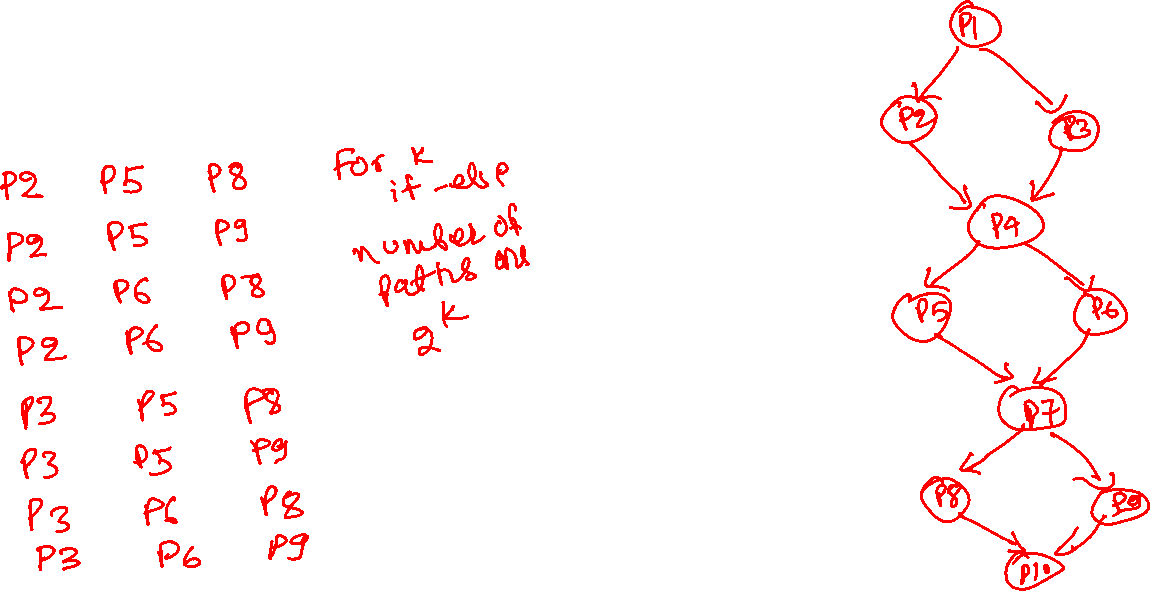 P2 P5 P8
P2 P5 P9
P2 P6 P8
P2 P6 P9
P3 P5 P8
P3 P5 P9
P3 P6 P8
P3 P6 P9
For K
if-else
number of
paths are
2^K
P1
P2
P3
P4
P5
P6
P7
P8
P9
P10